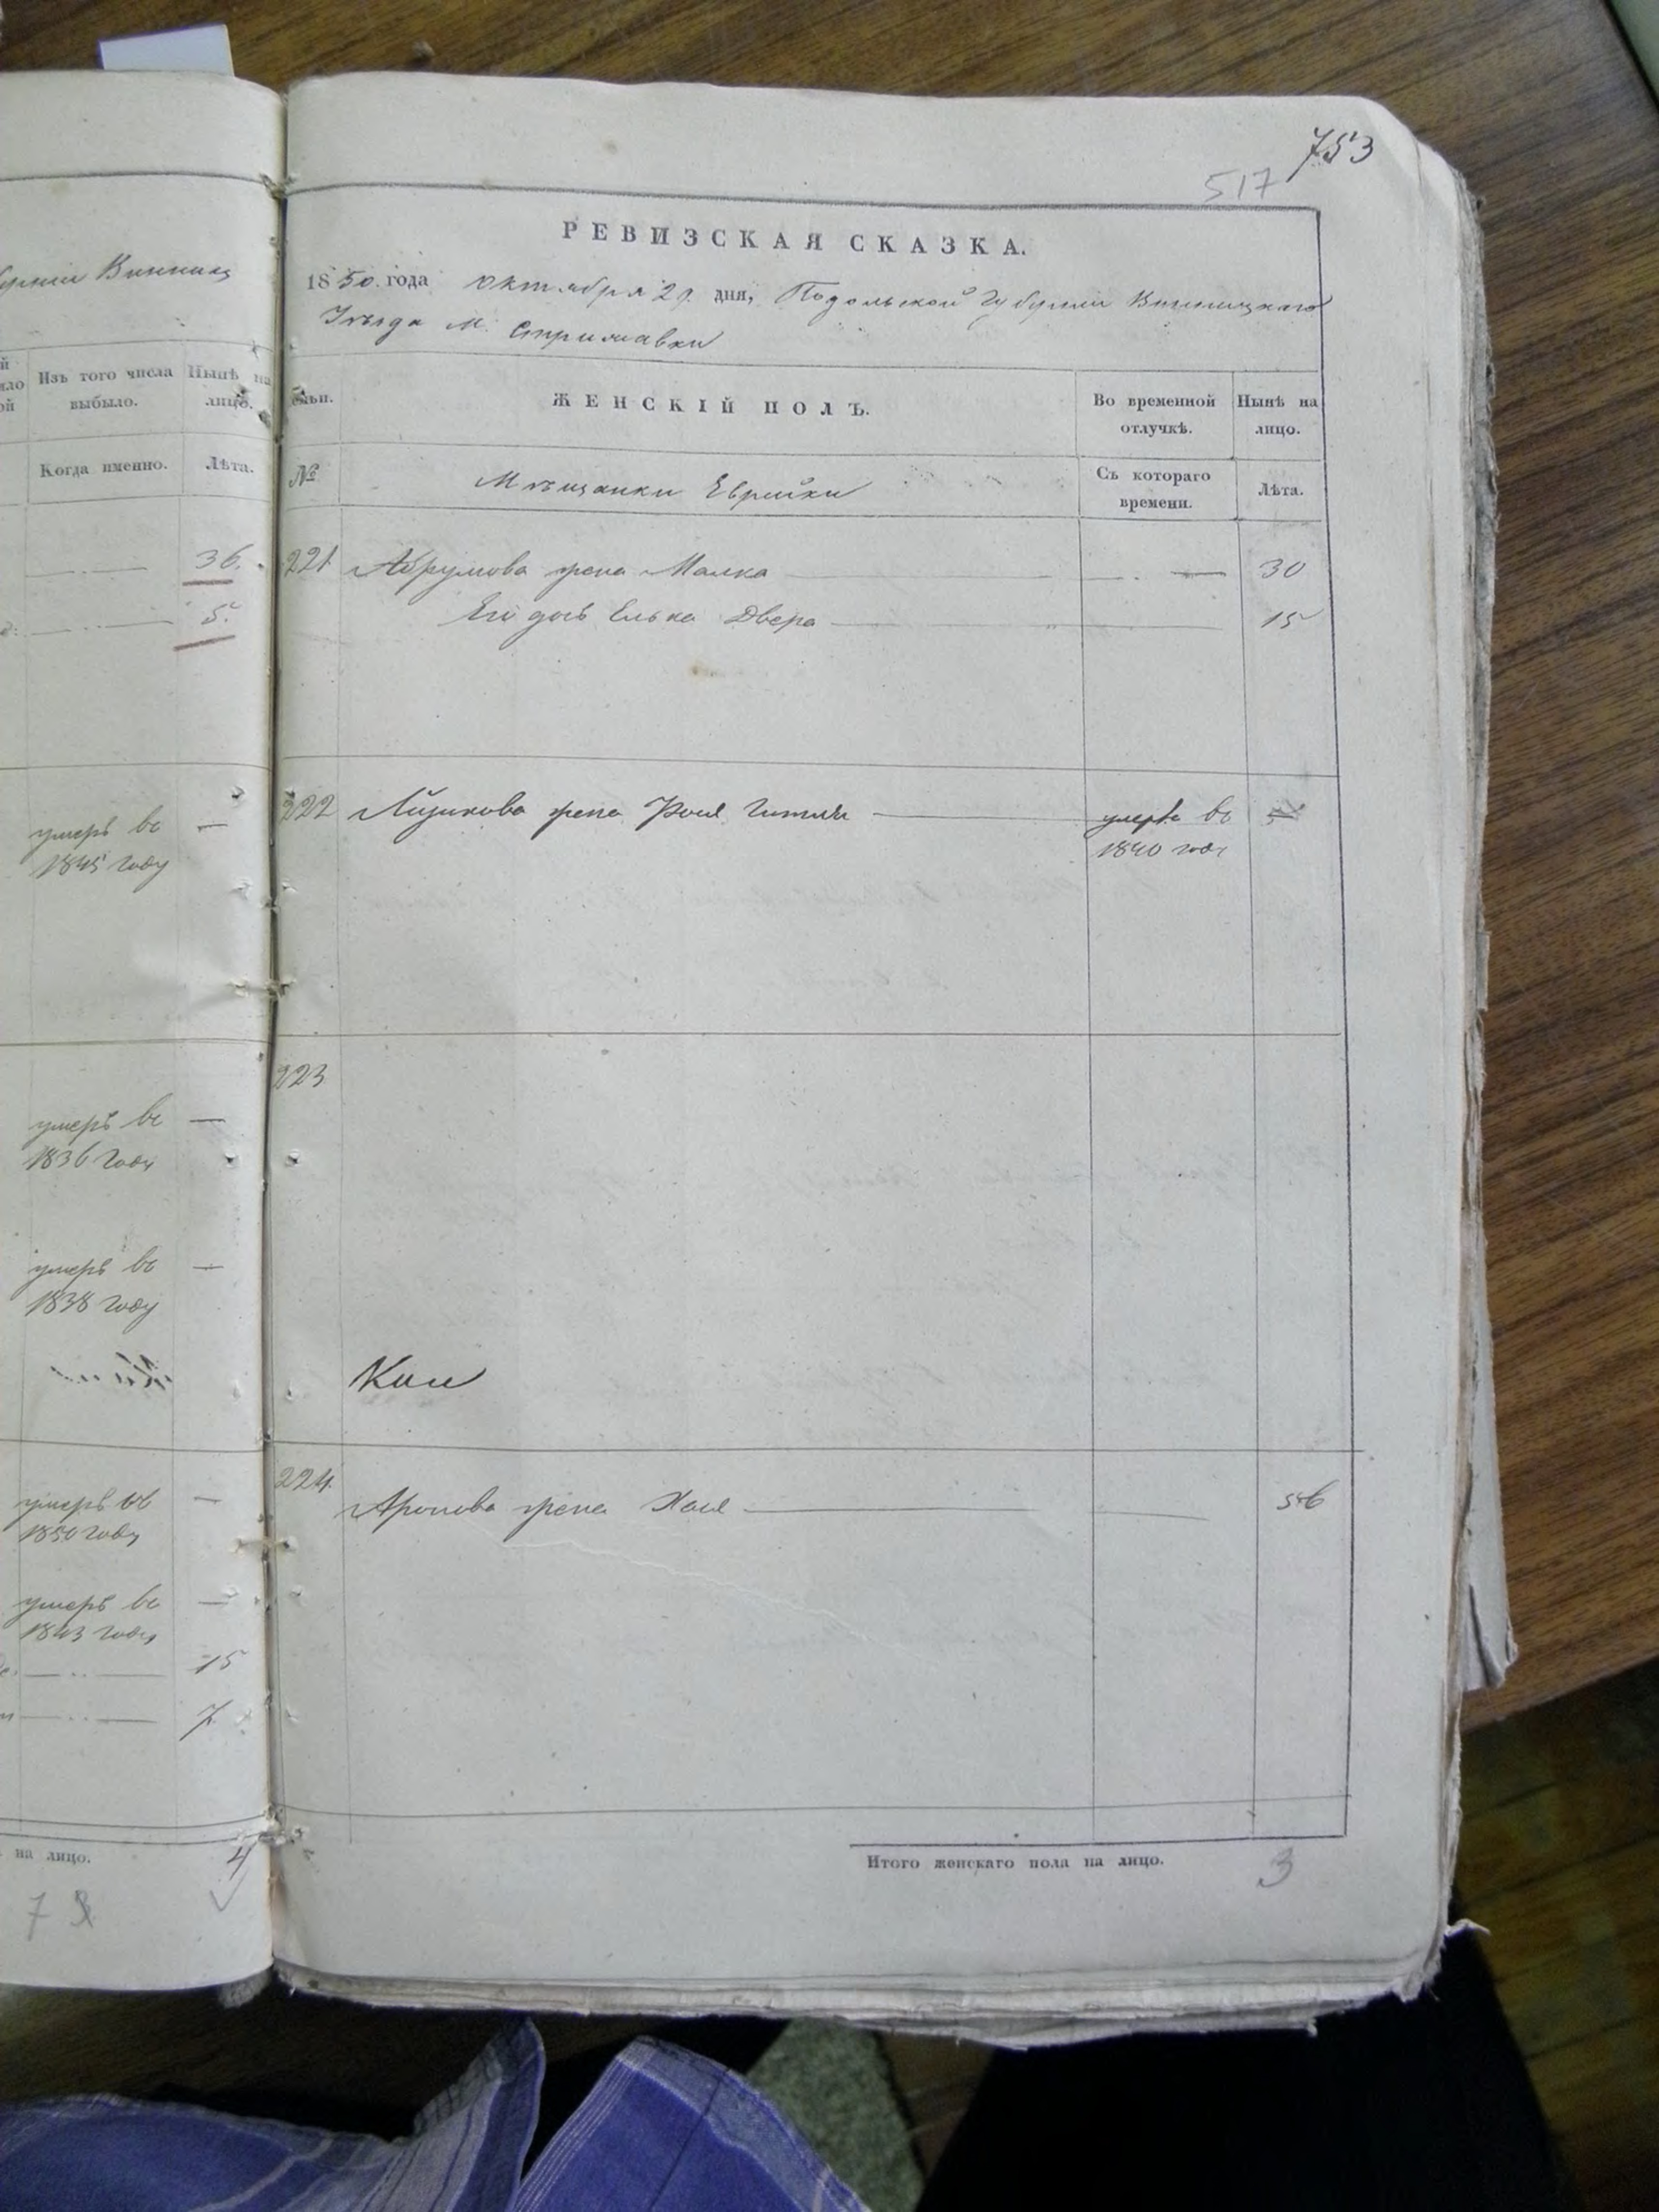 753
517
губерніи Винниц
Изъ того числа выбыло.
Нынѣ на лицо.
Когда именно.
Лѣта.
36.
5.
умеръ въ —
1845 году
умеръ въ —
1836 году
умеръ въ —
1838 году
умеръ въ —
1850 году
умеръ въ —
1843 году
15
7
на лицо. 4
7
РЕВИЗСКАЯ СКАЗКА.
1850 года Октября 29 дня, Подольской Губерніи Винницкаго
Уѣзда М. Стрижавки
ЖЕНСКІЙ ПОЛЪ.
Во временной отлучкѣ.
Нынѣ на лицо.
№
Мѣщанки Еврейки
Съ котораго времени.
Лѣта.
221 Абрумова жена Малка — 30
Его дочь Элька Двера — 15
222 Айзикова жена Рося Гитля — умерла въ
1840 году
223
Кои
224. Аронова жена Хая — 56
Итого женскаго пола на лицо. 3